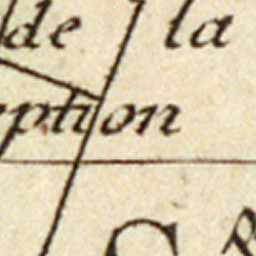 de la
ption